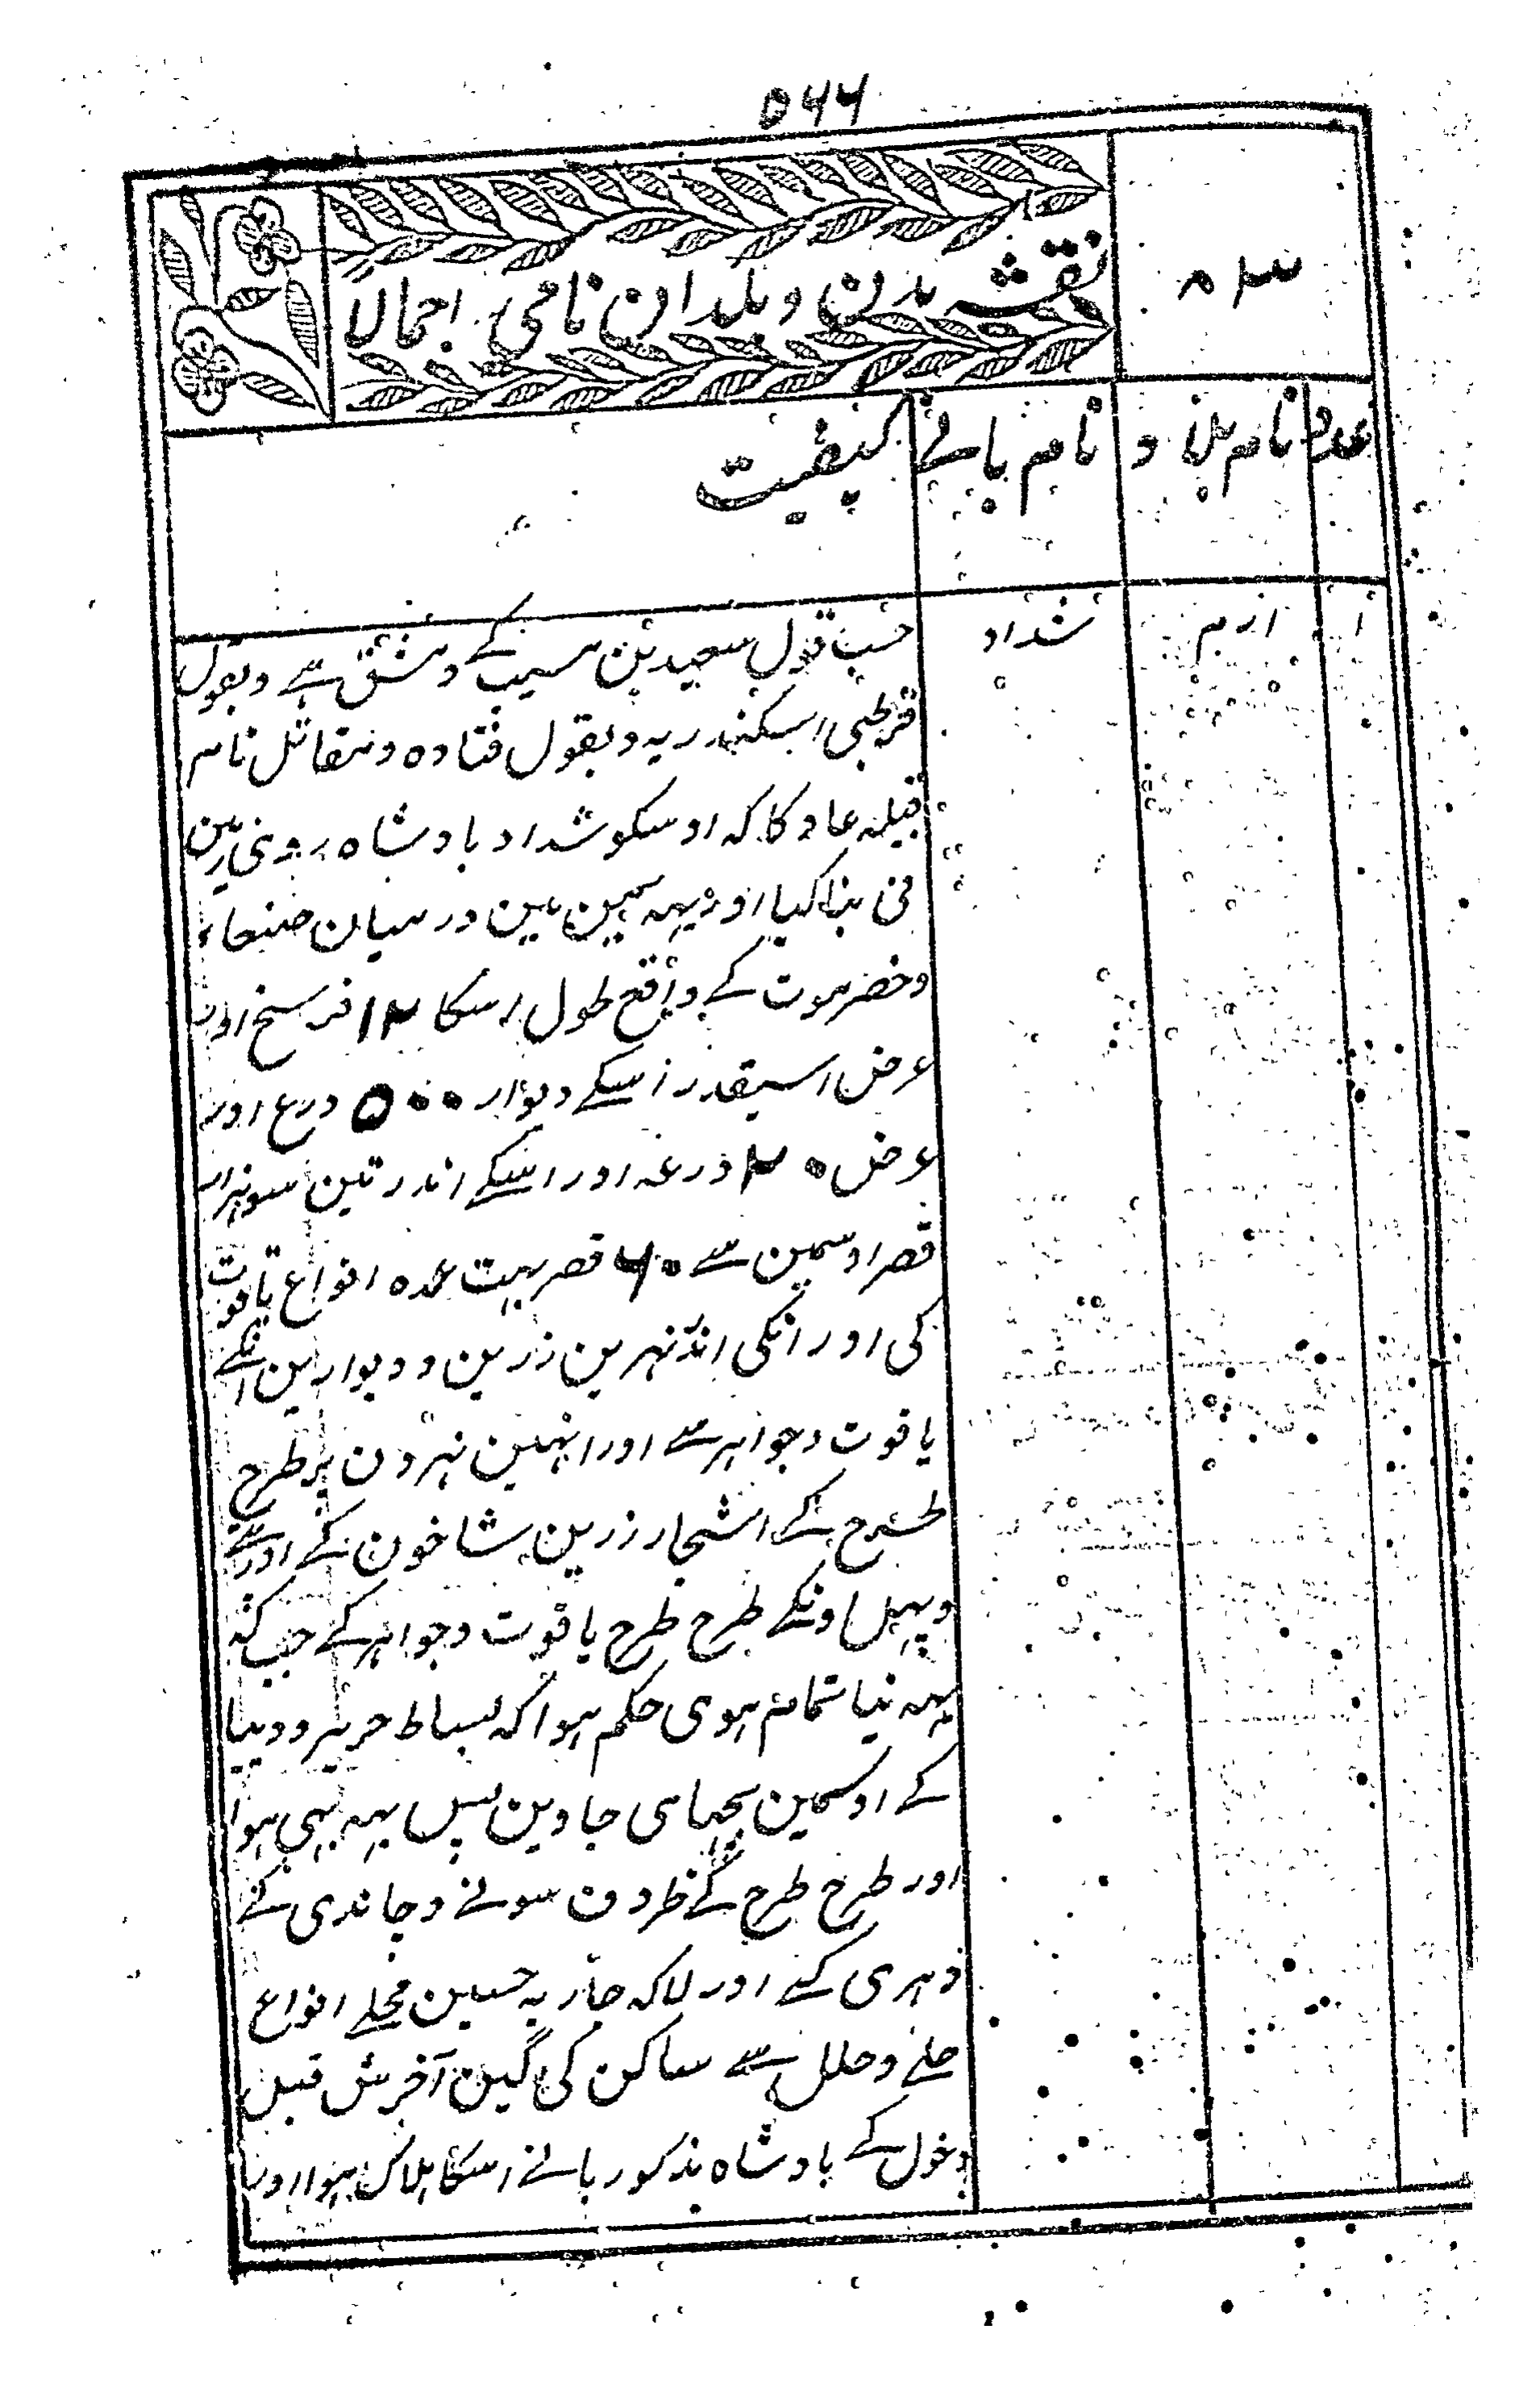 ٥٤٤
٨٣
نقشہ مدن و بلدان نامی اجمالاً
عدد نام بلد و نام بانے کیفیت
۱ ارم شداد حسب قول سعید بن مسیب کے دمشق ہے و بقول
قرطبی اسکندریہ و بقول قتادہ و مقاتل نام
قبیلہ عاد کا کہ اوسکو شداد بادشاہ روی زمین
نی بنا کیا اور یہہ یمن مین درمیان صنعاء
و حضرموت کے واقع طول اسکا ۱۲ فرسخ اور
عرض اسیقدر اسکے دیوار ٥٠٠ درع اور
عرض ۲۰ درعہ اور اسکے اندر تین سو ہزار
قصر اوسمین سے ۶۰ قصر بہت عمدہ انواع یاقوت
کی اور انکی اندر نہرین زرین و دیوارین انکے
یاقوت و جواہر سے اور انہین نہرون پر طرح
طرح کے اشجار زرین شاخون کے اور پتے
و پہل اونکے طرح طرح یاقوت و جواہر کے جب کہ
یہہ بنا تمام ہوی حکم ہوا کہ بساط حریر و دیبا
کے اوسمین بچہای جاوین پس یہہ بہی ہوا
اور طرح طرح کے ظروف سونے و چاندی کے
دہری گئے اور لاکہ جاریہ حسین محلے انواع
حلے و حلل سے ساکن کی گئین آخرش قبل
دخول کے بادشاہ مذکور بانے اسکا ہلاک ہوا اور